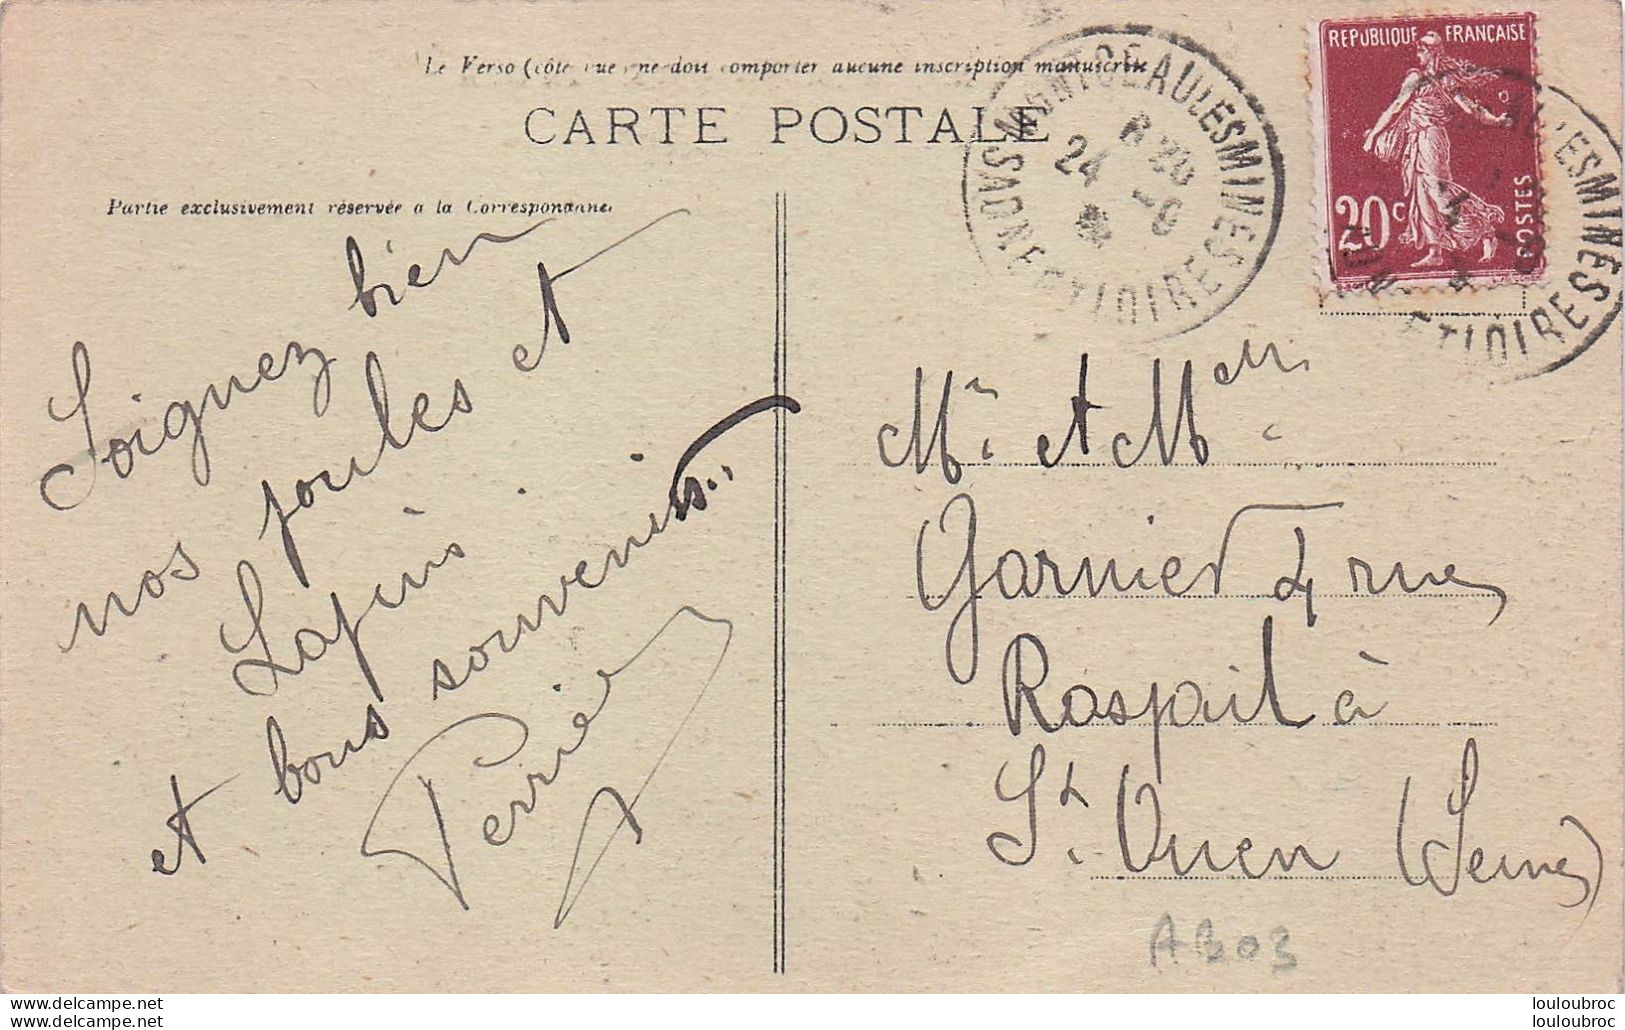 Le Verso (côté vue) ne doit comporter aucune inscription manuscrite
CARTE POSTALE
Partie exclusivement réservée a la Correspondance
Soignez bien
nos poules et
Lapins
et bons souvenirs..
Perrier
MONTCEAU LES MINES
24
SAONE ET LOIRE
REPUBLIQUE FRANÇAISE
20c
POSTES
LES MINES
ET LOIRE
Mr. et Melle
Garnier 4 rue
Raspail à
St. Ouen (Seine)
AB03
www.delcampe.net
www.delcampe.net
louloubroc
louloubroc